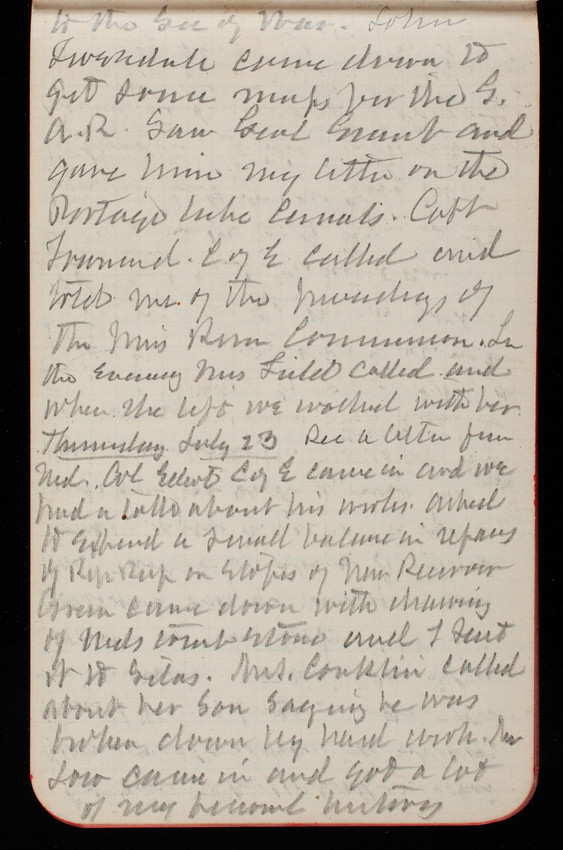 to the Sec of War. John
Tweedale came down to
get some maps for the G.
A.R. Saw Genl Grant and
gave him my letter on the
Portage Lake Canals. Capt
Townsend. C of E called and
told me of the proceedings of
the Miss River Commission. In
the Evening Mrs Field called and
when she left we walked with her
Thursday July 23 Rec a letter from
Ned. Col Elliot C of E came in and we
had a talk about his works. asked
to expend a small balance in repairs
of Rip Rap on slopes of New Reservoir
Green came down with drawing
of Neds tomb stone and I sent
it to Silas. Mrs. Conklin called
about her Son Saying he was
broken down by hard work. Mr
Low came in and got a lot
of my personal history